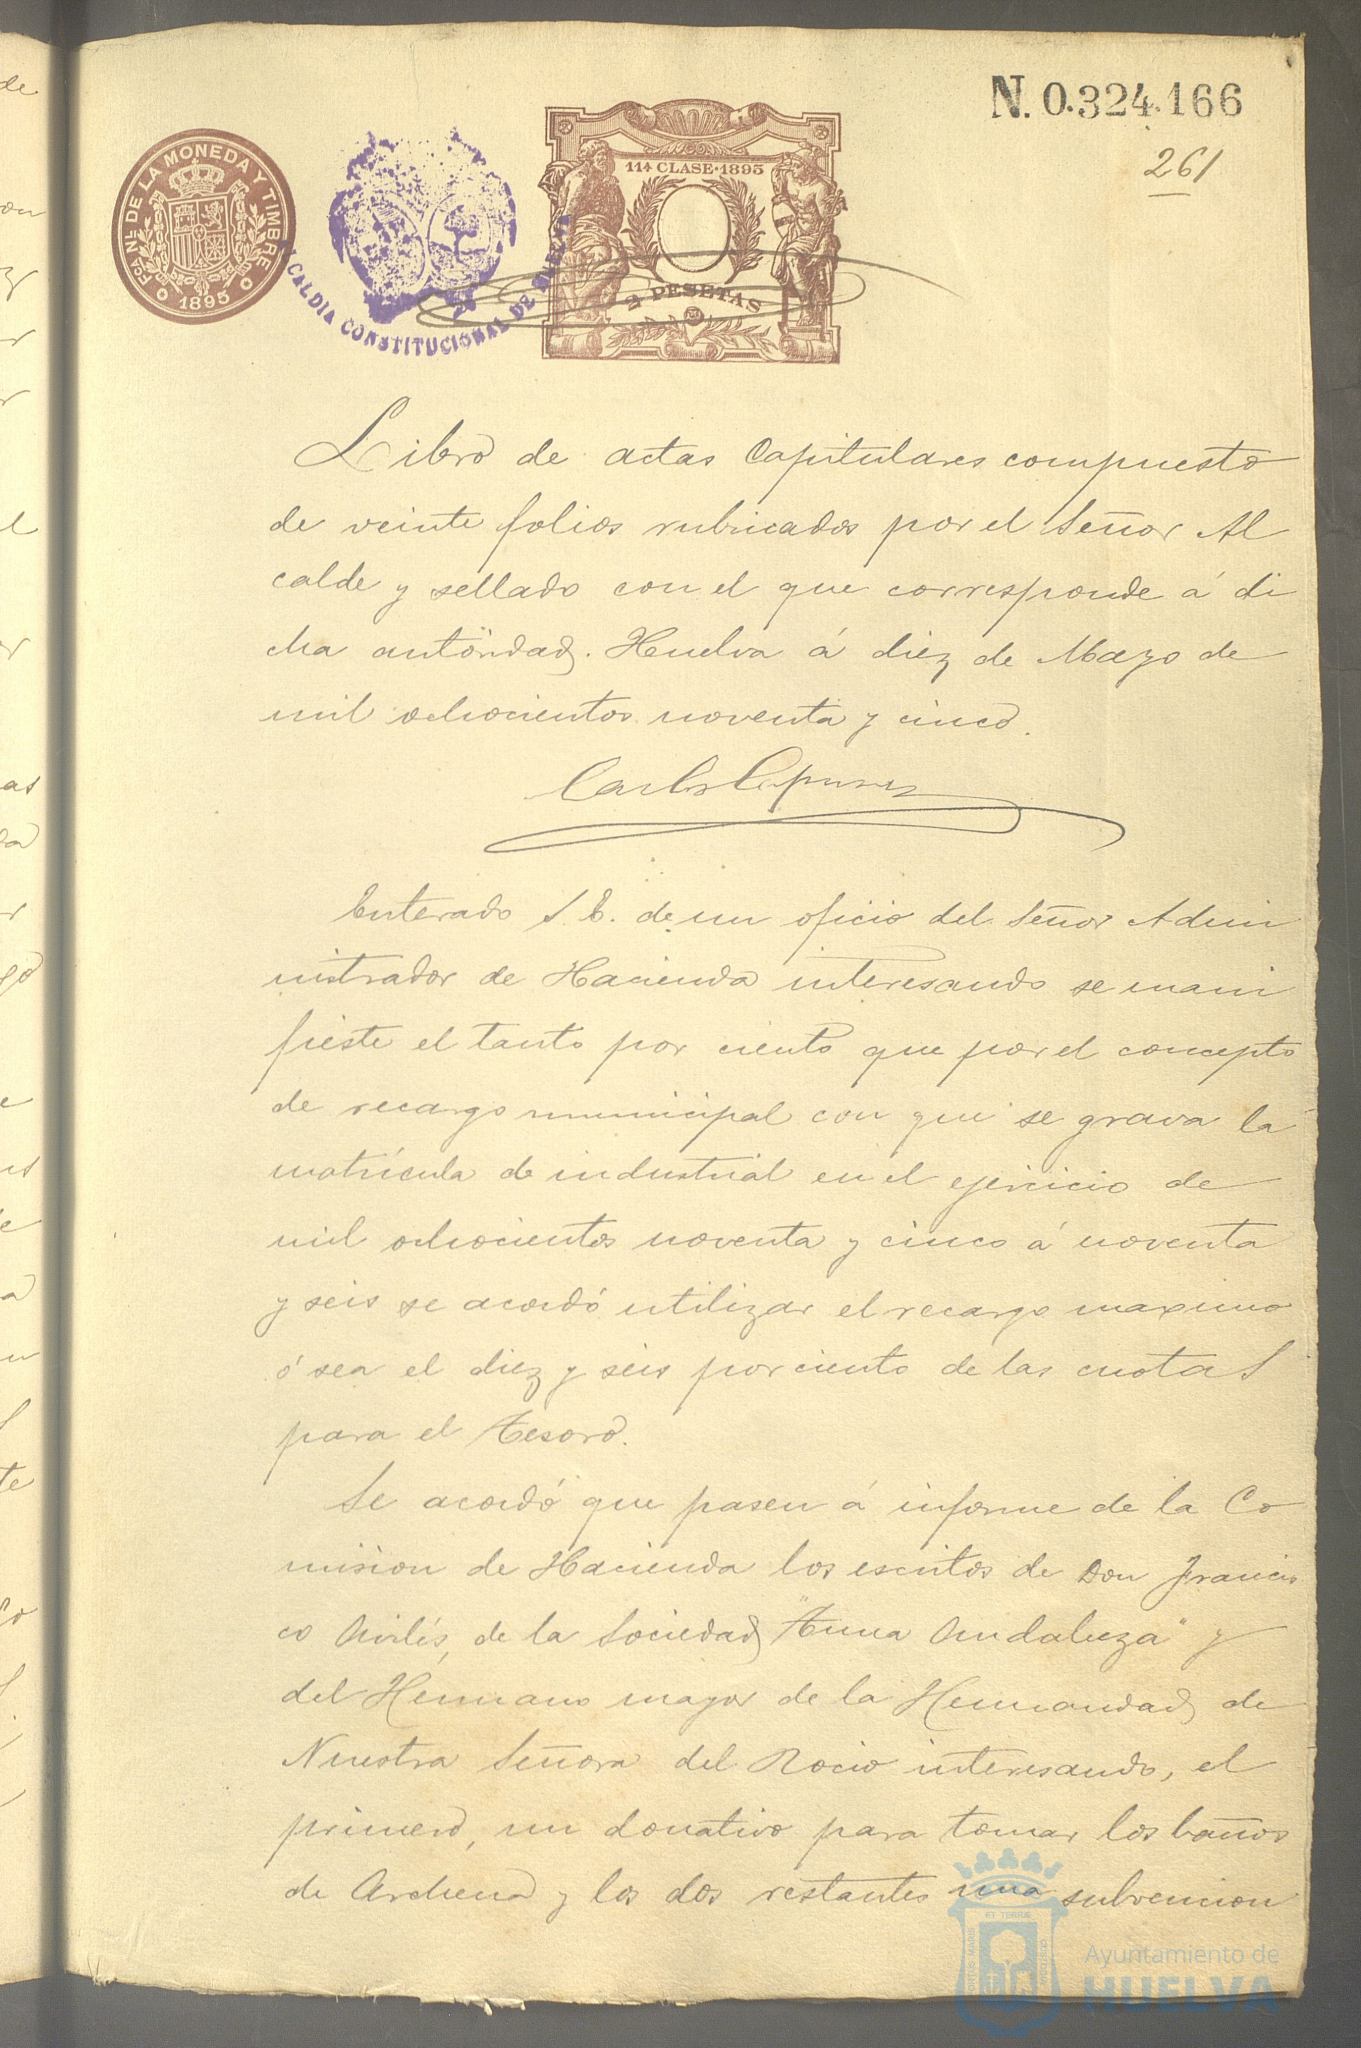 N. 0.324.166
261
FCA NL DE LA MONEDA Y TIMBRE
1895
ALCALDIA CONSTITUCIONAL DE HUELVA
11ª CLASE·1895
2 PESETAS
Libro de actas Capitulares compuesto
de veinte folios rubricados por el Señor Al
calde y sellado con el que corresponde á di
cha autoridad. Huelva á diez de Mayo de
mil ochocientos noventa y cinco.
Carlos
Enterado S. E. de un oficio del Señor Admi
nistrador de Hacienda interesando se mani
fieste el tanto por ciento que por el concepto
de recargo municipal con que se grava la
matrícula de industrial en el ejercicio de
mil ochocientos noventa y cinco á noventa
y seis se acordó utilizar el recargo maximo
ó sea el diez y seis por ciento de las cuotas
para el Tesoro.
Se acordó que pasen á informe de la Co
mision de Hacienda los escritos de Don Francis
co Avilés, de la Sociedad "Tuna Andaluza" y
del Hermano mayor de la Hermandad de
Nuestra Señora del Rocio interesando, el
primero, un donativo para tomar los baños
de Archena y los dos restantes una subvencion
Ayuntamiento de
HUELVA